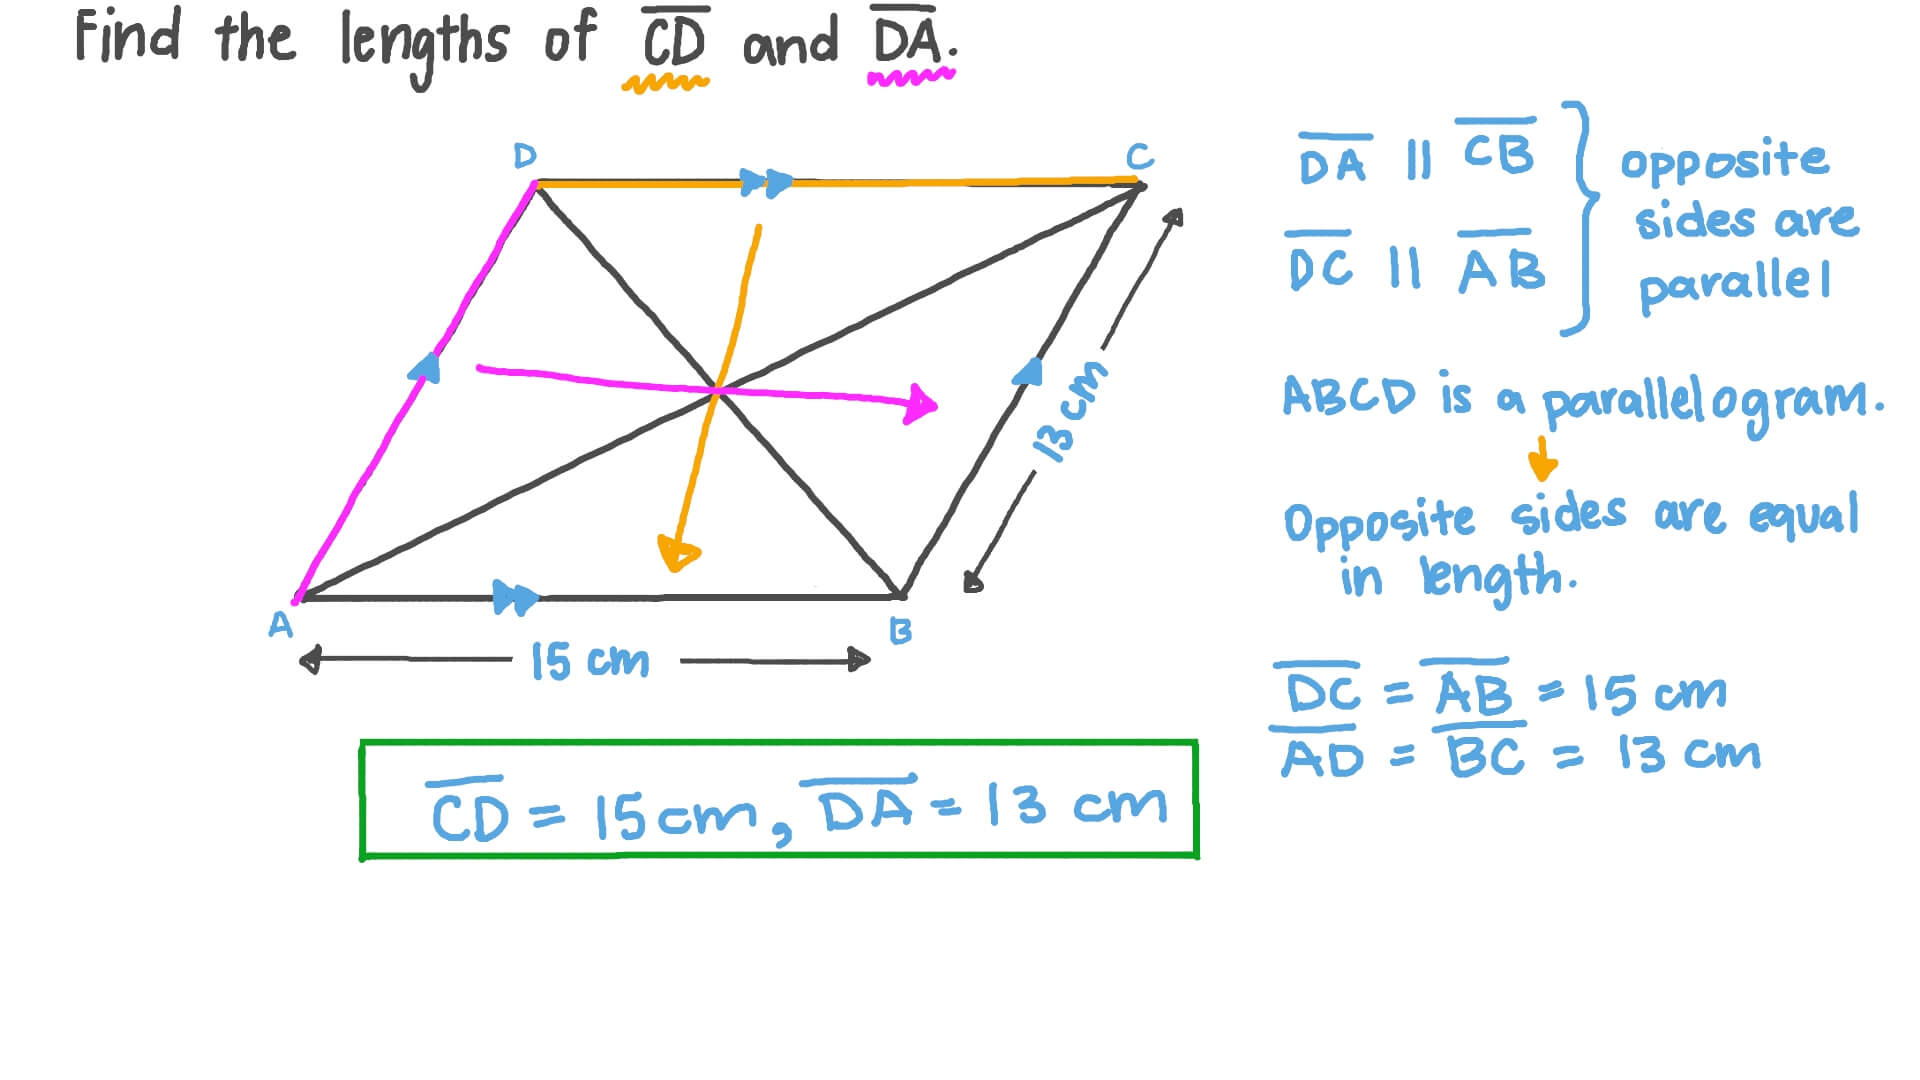 Find the lengths of CD and DA.
D
C
A
B
15 cm
13 cm
DA || CB
DC || AB
opposite
sides are
parallel
ABCD is a parallelogram.
Opposite sides are equal
in length.
DC = AB = 15 cm
AD = BC = 13 cm
CD = 15 cm, DA = 13 cm